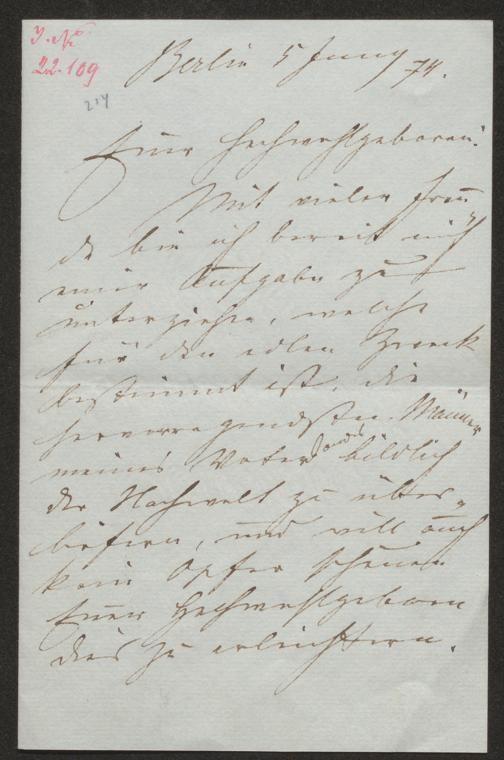 J. N°
22.109
214
Berlin 5 Juny 74.
Euer Hochwohlgeboren!
Mit vielen Freu
de bin ich bereit mich
einer Aufgabe zu
unterziehen, welche
für den edlen Zweck
bestimmt ist, die
hervorragendsten Männer
meines Vaterlandes bildlich
der Nachwelt zu über-
liefern, und will auch
kein Opfer scheuen
Euer Hochwohlgeboren
dies zu erleichtern.